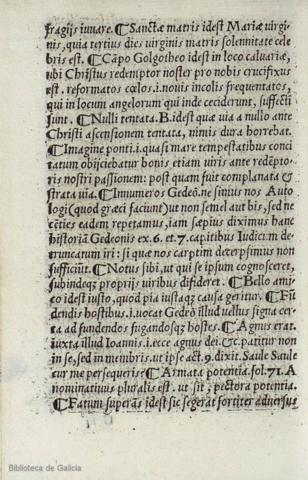 fragijs iuuare. ¶Sanctæ matris idest Mariæ virgi-
nis, quia tertius dies virginis matris solennitate cele
bris est. ¶Cāpo Golgotheo idest in loco caluariæ,
vbi Christus redemptor noster pro nobis crucifixus
est. reformatos cœlos .i. nouis incolis frequentatos,
qui in locum angelorum qui inde ceciderunt, suffecti
sunt. ¶Nulli tentata. B. idest quæ via a nullo ante
Christi ascensionem tentata, nimis dura horrebat.
¶Imagine ponti .i. quasi mare tempestatibus conci
tatum obijciebatur bonis etiam viris ante redēpto-
ris nostri passionem: post quam fuit complanata &
strata via. ¶Innumeros Gedeō. ne sinius nos Auto
logi (quod græci faciunt) ut non semel aut bis, sed ne
cēties eadem repetamus, iam sæpius diximus hanc
historiā Gedeonis ex .6. et .7. capitibus Iudicū m de-
truncatum iri: si quæ nos carptim decerpsimus non
sufficiūt. ¶Notus sibi, ut qui se ipsum cognosceret,
subindeque proprijs viribus difideret. ¶Bello ami
co idest iusto, quod pia iustaque causa geritur. ¶Fū
dendis hostibus .i. uocat Gedeō illud uellus signa cer
ta ad fundendos fugandosque hostes. ¶Agnus erat.
iuxta illud Ioannis .i. ecce agnus dei. & patitur non
in se, sed in membris. ut ipse act. 9. dixit. Saule Saule
cur me persequeris? ¶Armata potentia. fol. 71. A
nominatiuus pluralis est. ut sit, pectora potentia.
¶Fatum superās idest sic se gerat fortiter aduersus
Biblioteca de Galicia